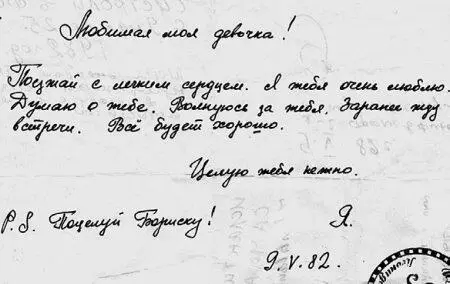 Любимая моя девочка!
Поезжай с легким сердцем. Я тебя очень люблю.
Думаю о тебе. Волнуюсь за тебя. Заранее жду
встречи. Всё будет хорошо.
Целую тебя нежно.
P.S. Поцелуй Бориску! Я.
9.V.82.